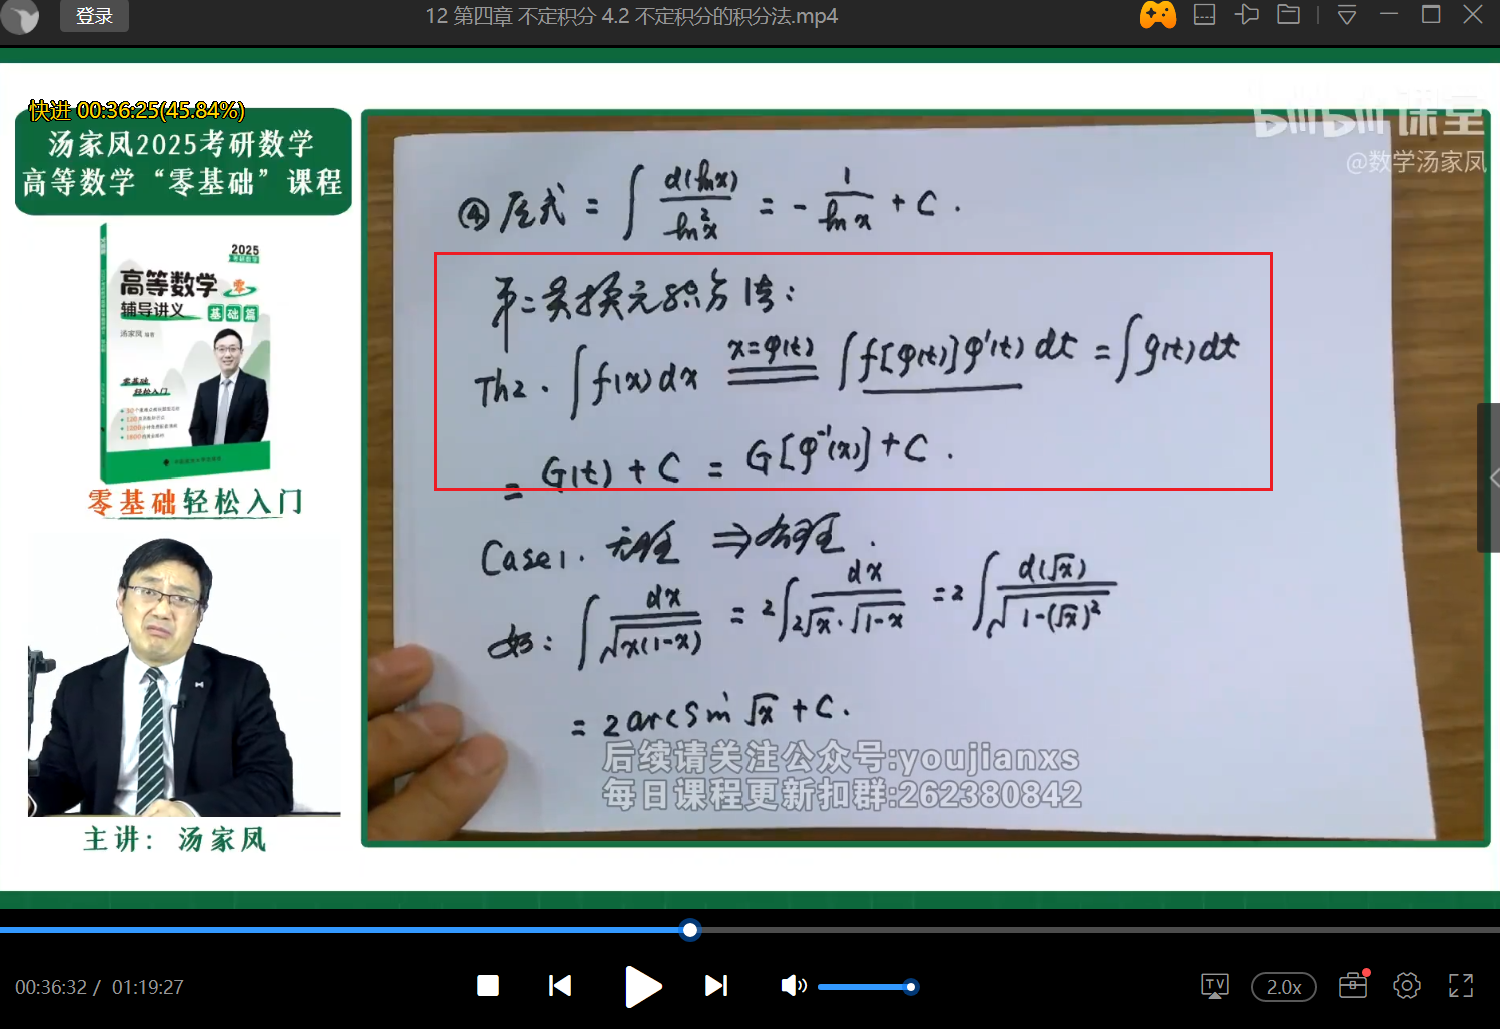 登录
12 第四章 不定积分 4.2 不定积分的积分法.mp4
快进 00:36:25(45.84%)
汤家凤2025考研数学
高等数学“零基础”课程
2025
考研数学
高等数学 零
辅导讲义 基础篇
汤家凤 编著
零基础
轻松入门
零基础轻松入门
主讲：汤家凤
bilibili课堂
@数学汤家凤
④ 原式 = ∫ d(ln x)/ln²x = - 1/ln x + C .
第二类换元积分法：
Th2. ∫ f(x) dx x=φ(t) ∫ f[φ(t)]φ'(t) dt = ∫ g(t) dt
= G(t) + C = G[φ⁻¹(x)] + C .
Case1. 无理 ⇒ 有理 .
如: ∫ dx/√x(1-x) = 2∫ dx/2√x·√1-x = 2∫ d(√x)/√1-(√x)²
= 2 arcsin √x + C .
后续请关注公众号:youjianxs
每日课程更新扣群:262380842
00:36:32 / 01:19:27
TV
2.0x